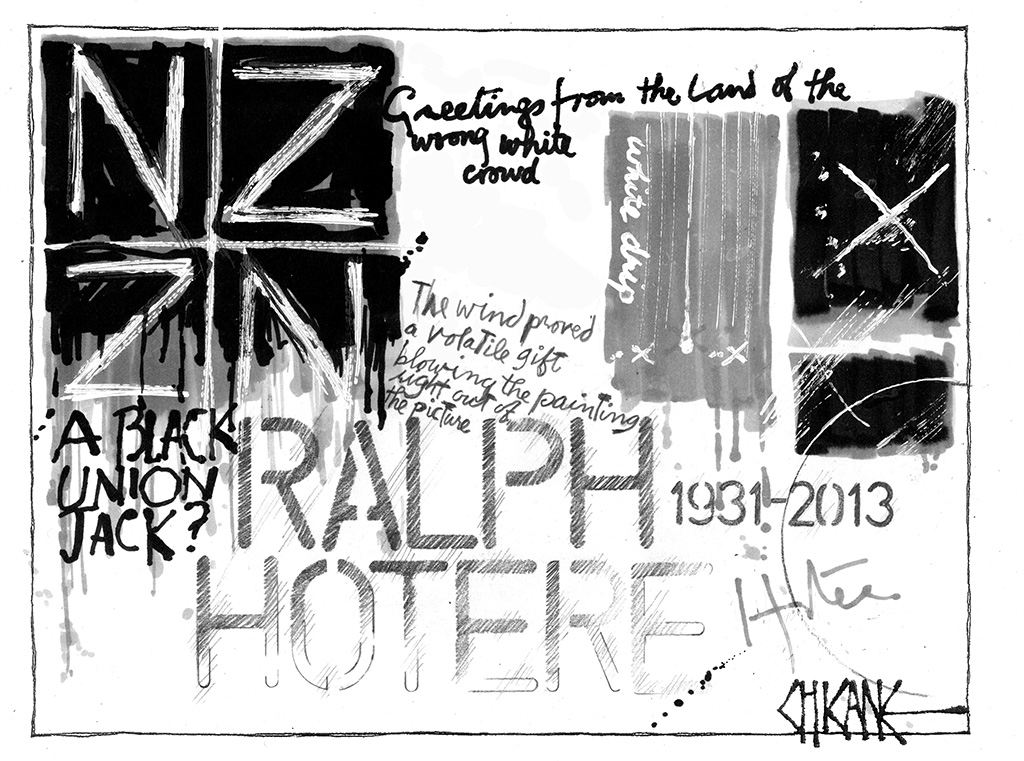 NZ
ZN
Greetings from the Land of the
wrong white
crowd
white drip
The wind proved
a volatile gift
blowing the painting
right out of
the picture
A BLACK
UNION
JACK?
RALPH
HOTERE
1931-2013
Hotere
CHICANE